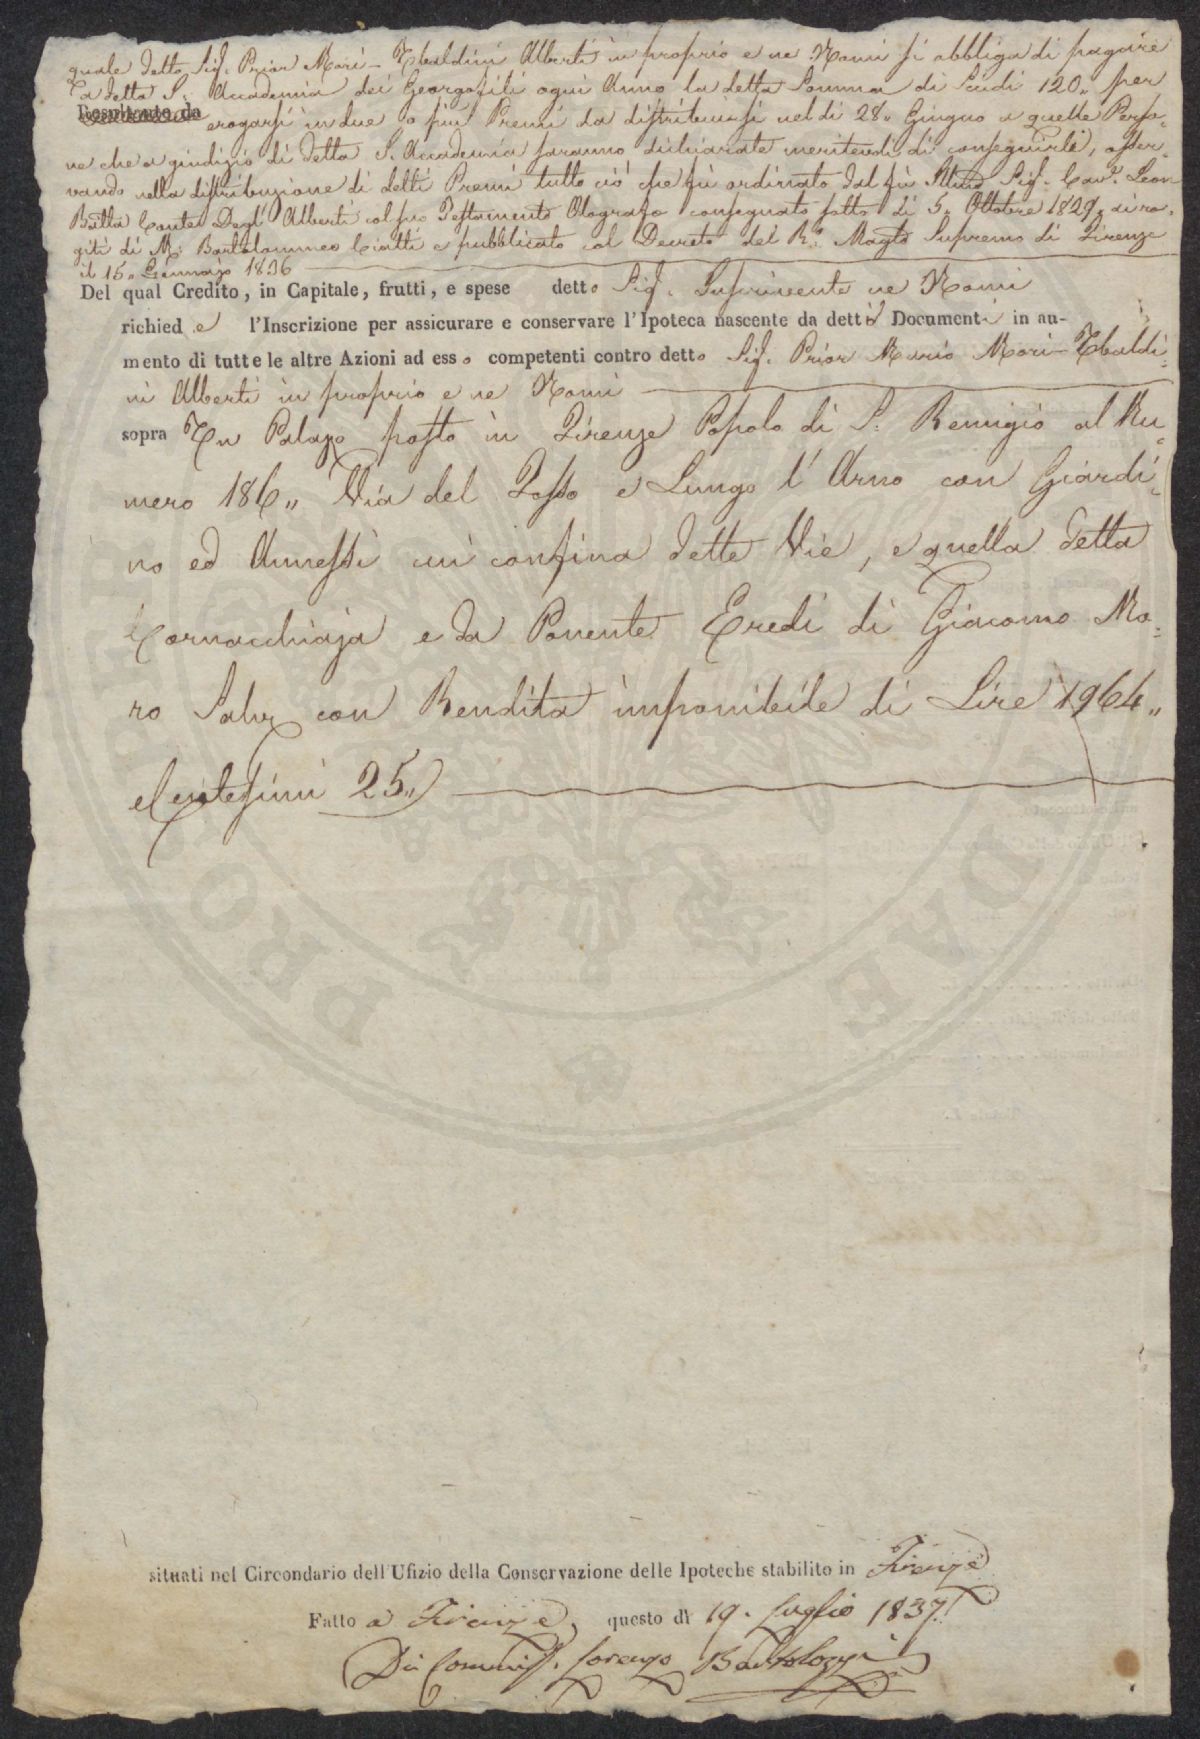 quale detto Sig. Prior Mori-Ubaldini Alberti in proprio e ne Nomi si obbliga di pagare
a detta I. Accademia dei Georgofili ogni Anno la detta Somma di Scudi 120,, per
erogarsi in due o più Premi da distribuirsi nel dì 28,, Giugno a quelle Perso-
ne che a giudizio di detta I. Accademia saranno dichiarate meritevoli di conseguirli, osser-
vando nella distribuzione di detti Premi tutto ciò che fù ordinato dal fù Illmo Sig. Cav. Leon
Batta Conte Degl'Alberti col suo Testamento Olografo consegnato sotto dì 5,, Ottobre 1829,, ai ro-
giti di M. Bartolommeo Ciatti e pubblicato col Decreto del R. Magto Supremo di Firenze
il 15,, Gennajo 1836
Del qual Credito, in Capitale, frutti, e spese detto Sig. Inscrivente ne Nomi
richiede l'Inscrizione per assicurare e conservare l'Ipoteca nascente da detti Documenti in au-
mento di tutte le altre Azioni ad esso competenti contro detto Sig. Prior Mario Mori-Ubaldi-
ni Alberti in proprio e ne Nomi
sopra Un Palazzo posto in Firenze Popolo di S. Remigio al Nu-
mero 186,, Via del Fosso e Lungo l'Arno con Giardi-
no ed Annessi cui confina dette Vie, e quella detta
Cornacchiaja e da Ponente Eredi di Giacomo Mo-
ro con Rendita imponibile di Lire 1964,,
e Centesimi 25,,
situati nel Circondario dell'Ufizio della Conservazione delle Ipoteche stabilito in Firenze
Fatto a Firenze, questo dì 19. Luglio 1837.
Lorenzo Bartolozzi